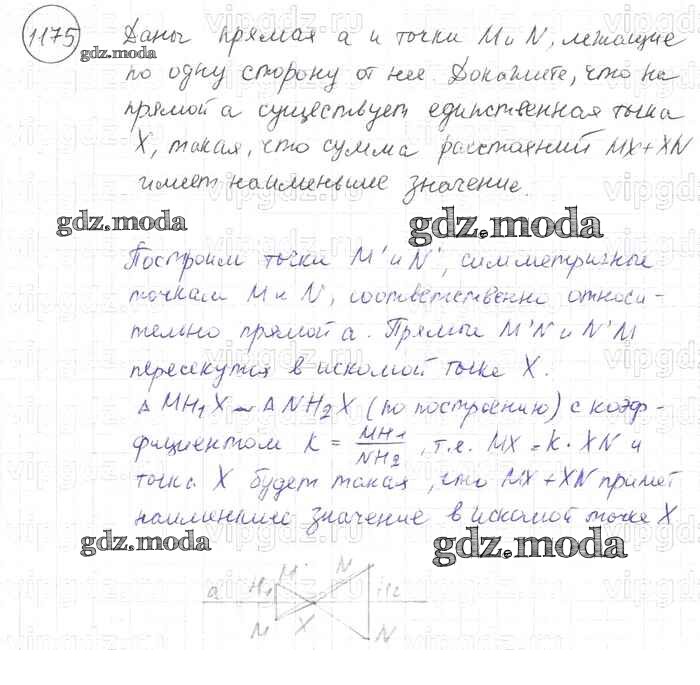 1175
gdz.moda
Даны прямая a и точки M и N, лежащие
по одну сторону от нее. Докажите, что на
прямой a существует единственная точка
X, такая, что сумма расстояний MX+XN
имеет наименьшее значение.
gdz.moda gdz.moda
Построим точки M' и N', симметричные
точкам M и N, соответственно относи-
тельно прямой a. Прямые M'N и N'M
пересекутся в искомой точке X.
Δ MH₁X ~ Δ NH₂X (по построению) с коэф-
фициентом K = MH₁/NH₂, т.е. MX = K · XN и
точка X будет такая, что MX + XN примет
наименьшее значение в искомой точке X
gdz.moda gdz.moda
M N
a H₁ H₂
M X N